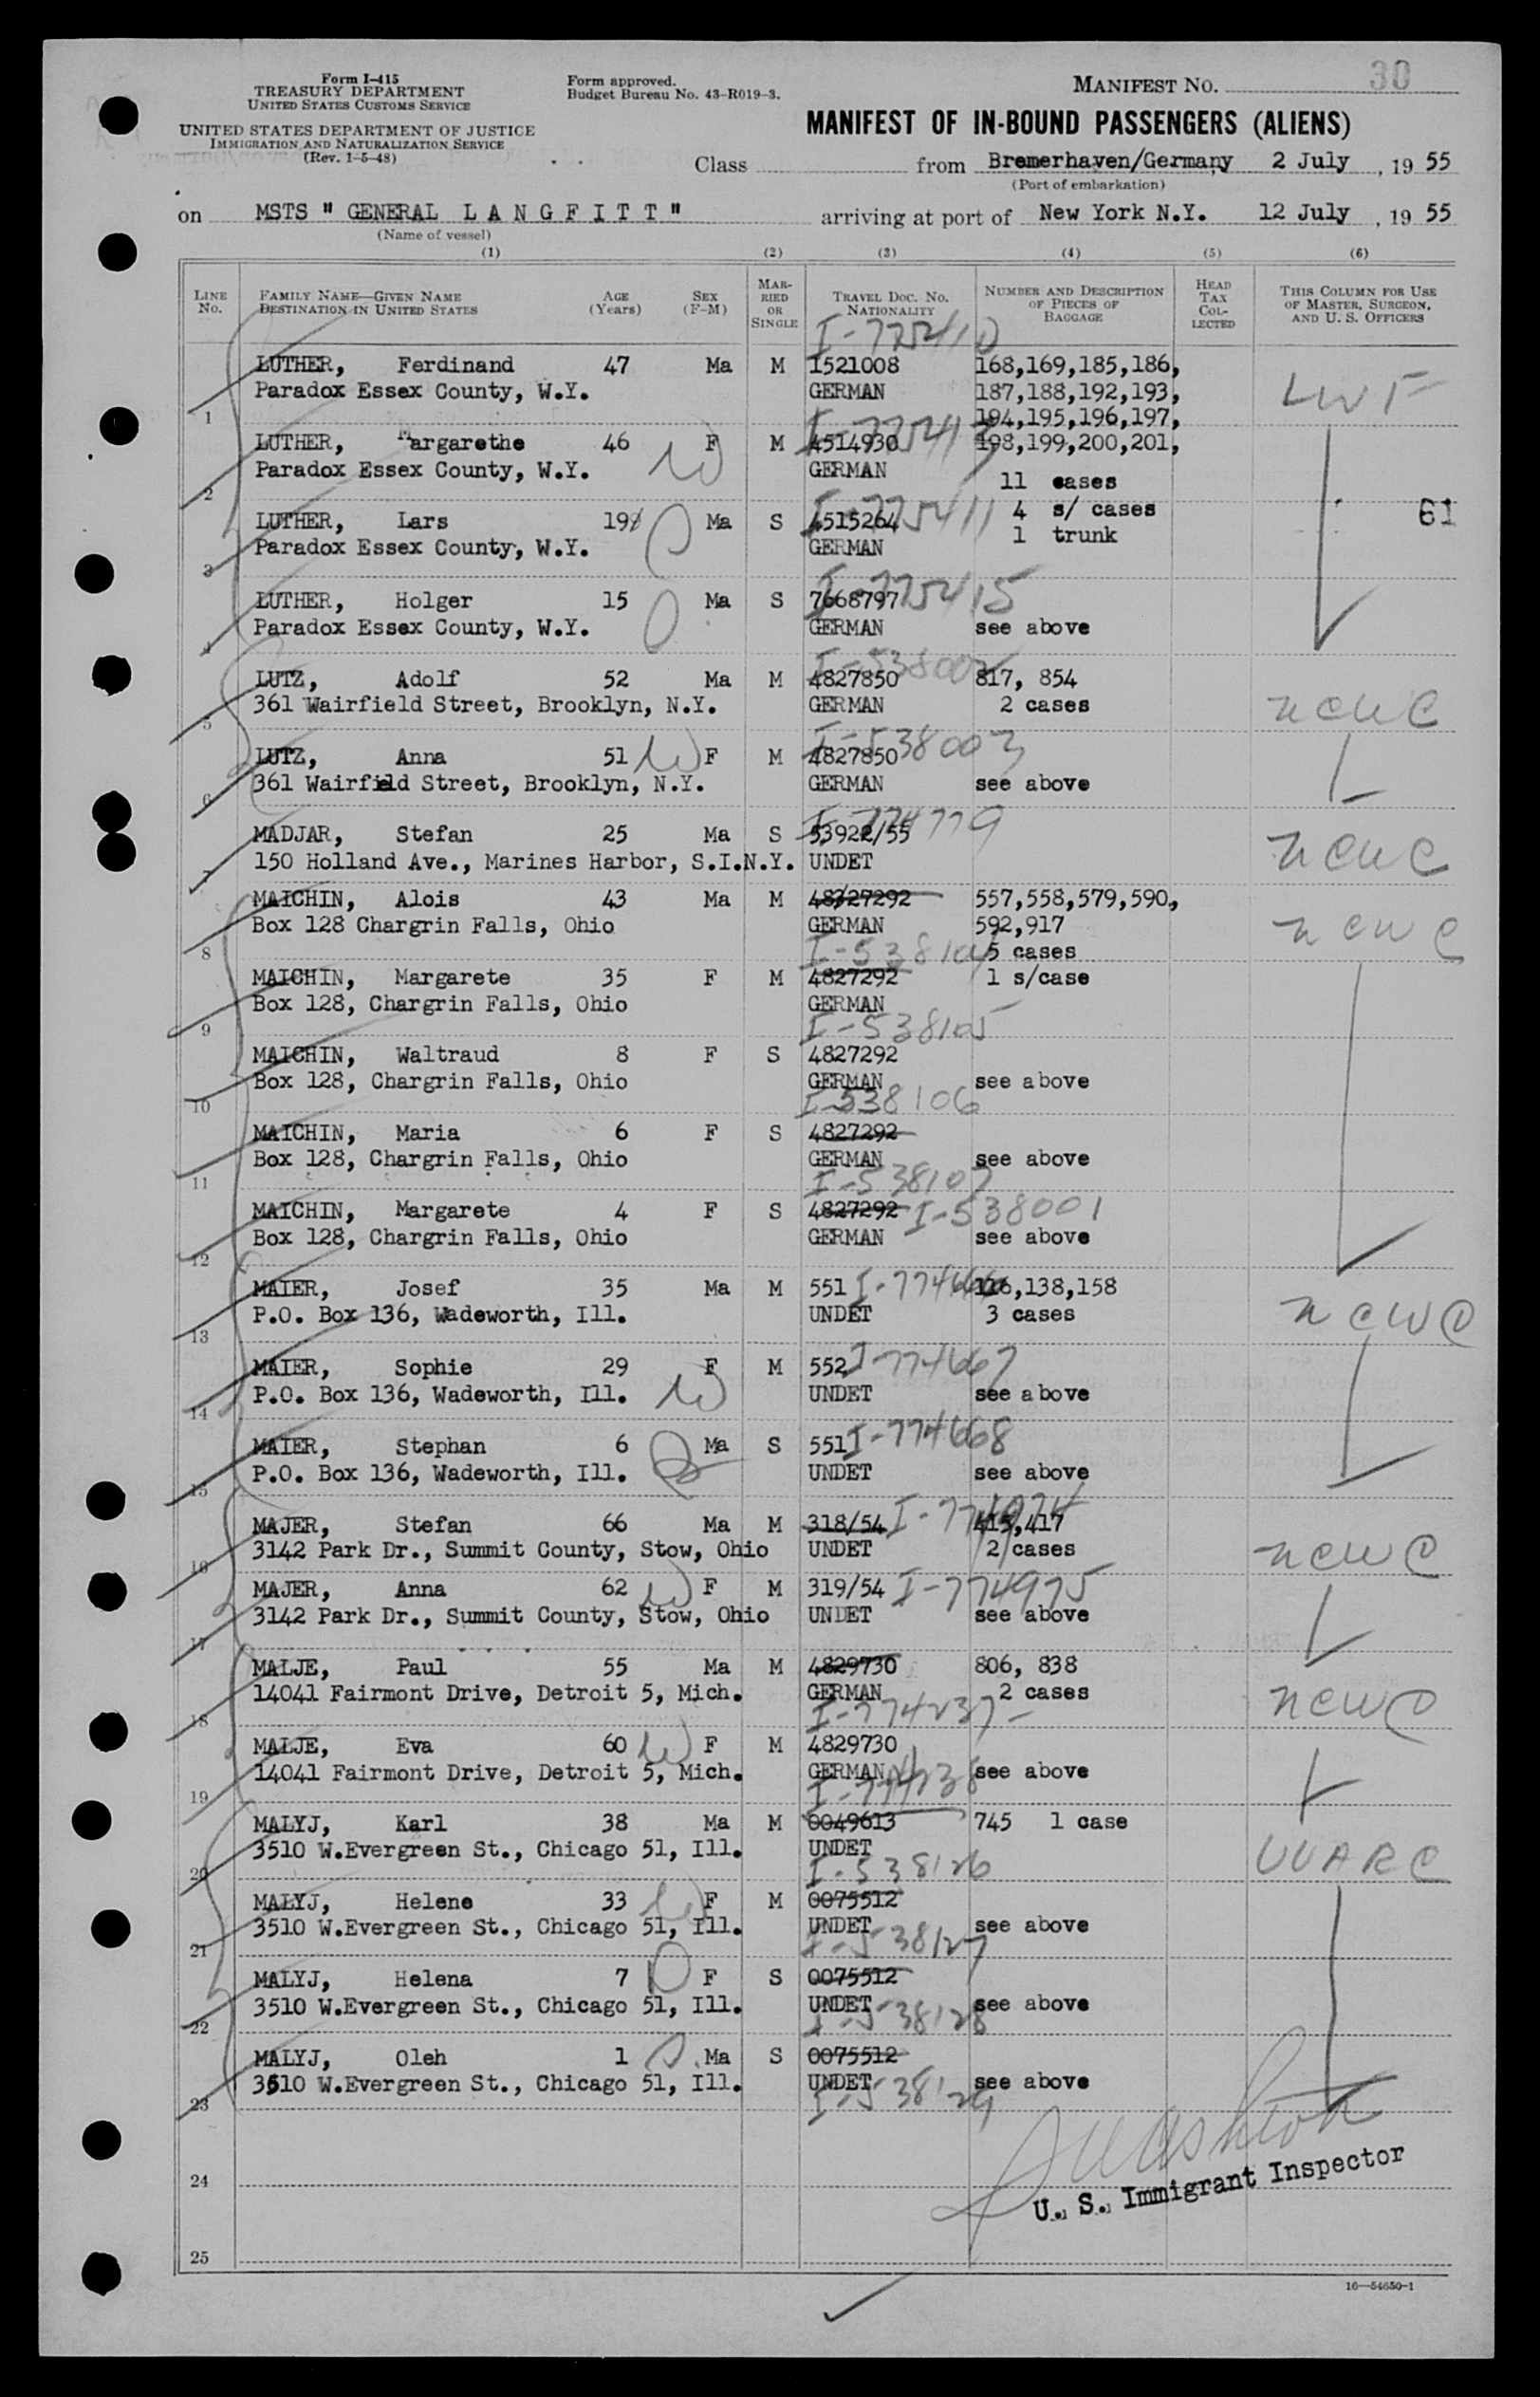 Form I-415
TREASURY DEPARTMENT
UNITED STATES CUSTOMS SERVICE
UNITED STATES DEPARTMENT OF JUSTICE
IMMIGRATION AND NATURALIZATION SERVICE
(Rev. 1-5-48)
Form approved.
Budget Bureau No. 43-R019-3.
MANIFEST NO. 30
MANIFEST OF IN-BOUND PASSENGERS (ALIENS)
Class from Bremerhaven/Germany 2 July, 19 55
(Port of embarkation)
on MSTS " GENERAL L A N G F I T T " arriving at port of New York N.Y. 12 July, 19 55
(Name of vessel)
(1) (2) (3) (4) (5) (6)
LINE No. FAMILY NAME—GIVEN NAME DESTINATION IN UNITED STATES AGE (Years) SEX (F-M) MARRIED OR SINGLE TRAVEL DOC. NO. NATIONALITY NUMBER AND DESCRIPTION OF PIECES OF BAGGAGE HEAD TAX COLLECTED THIS COLUMN FOR USE OF MASTER, SURGEON, AND U. S. OFFICERS
I-775410
LUTHER, Ferdinand 47 Ma M 1521008 168,169,185,186,
Paradox Essex County, W.Y. GERMAN 187,188,192,193, LWF
1 194,195,196,197,
LUTHER, Margarethe 46 F M 4514930 198,199,200,201,
Paradox Essex County, W.Y. GERMAN 11 cases
2 I-775411 4 s/ cases 61
LUTHER, Lars 19 Ma S 4515264 1 trunk
Paradox Essex County, W.Y. GERMAN
3 I-775415
LUTHER, Holger 15 Ma S 7668797
Paradox Essex County, W.Y. GERMAN see above
4 I-538002
LUTZ, Adolf 52 Ma M 4827850 817, 854
361 Wairfield Street, Brooklyn, N.Y. GERMAN 2 cases NCWC
5 I-538003
LUTZ, Anna 51 F M 4827850
361 Wairfield Street, Brooklyn, N.Y. GERMAN see above
6 I-774779
MADJAR, Stefan 25 Ma S 53922/55
150 Holland Ave., Marines Harbor, S.I.N.Y. UNDET NCWC
7
MAICHIN, Alois 43 Ma M 48/27292 557,558,579,590,
Box 128 Chargrin Falls, Ohio GERMAN 592,917 NCWC
8 I-538104 5 cases
MAICHIN, Margarete 35 F M 4827292 1 s/case
Box 128, Chargrin Falls, Ohio GERMAN
9 I-538105
MAICHIN, Waltraud 8 F S 4827292
Box 128, Chargrin Falls, Ohio GERMAN see above
10 I-538106
MAICHIN, Maria 6 F S 4827292
Box 128, Chargrin Falls, Ohio GERMAN see above
11 I-538107
MAICHIN, Margarete 4 F S 4827292 I-538001
Box 128, Chargrin Falls, Ohio GERMAN see above
12
MAIER, Josef 35 Ma M 551 116,138,158
P.O. Box 136, Wadeworth, Ill. UNDET 3 cases NCWC
13
MAIER, Sophie 29 F M 552 I-774667
P.O. Box 136, Wadeworth, Ill. UNDET see above
14
MAIER, Stephan 6 Ma S 551 I-774668
P.O. Box 136, Wadeworth, Ill. UNDET see above
15
MAJER, Stefan 66 Ma M 318/54 I-774974 415,417
3142 Park Dr., Summit County, Stow, Ohio UNDET 2 cases NCWC
16
MAJER, Anna 62 F M 319/54 I-774975
3142 Park Dr., Summit County, Stow, Ohio UNDET see above
17
MALJE, Paul 55 Ma M 4829730 806, 838
14041 Fairmont Drive, Detroit 5, Mich. GERMAN 2 cases NCWC
18 I-774237
MALJE, Eva 60 F M 4829730
14041 Fairmont Drive, Detroit 5, Mich. GERMAN see above
19 I-774238
MALYJ, Karl 38 Ma M 0049613 745 1 case
3510 W.Evergreen St., Chicago 51, Ill. UNDET UUARC
20 I-538126
MALYJ, Helene 33 F M 0075512
3510 W.Evergreen St., Chicago 51, Ill. UNDET see above
21 I-538127
MALYJ, Helena 7 F S 0075512
3510 W.Evergreen St., Chicago 51, Ill. UNDET see above
22 I-538128
MALYJ, Oleh 1 Ma S 0075512
3510 W.Evergreen St., Chicago 51, Ill. UNDET see above
23 I-538129
24
U. S. Immigrant Inspector
25
16—54650-1